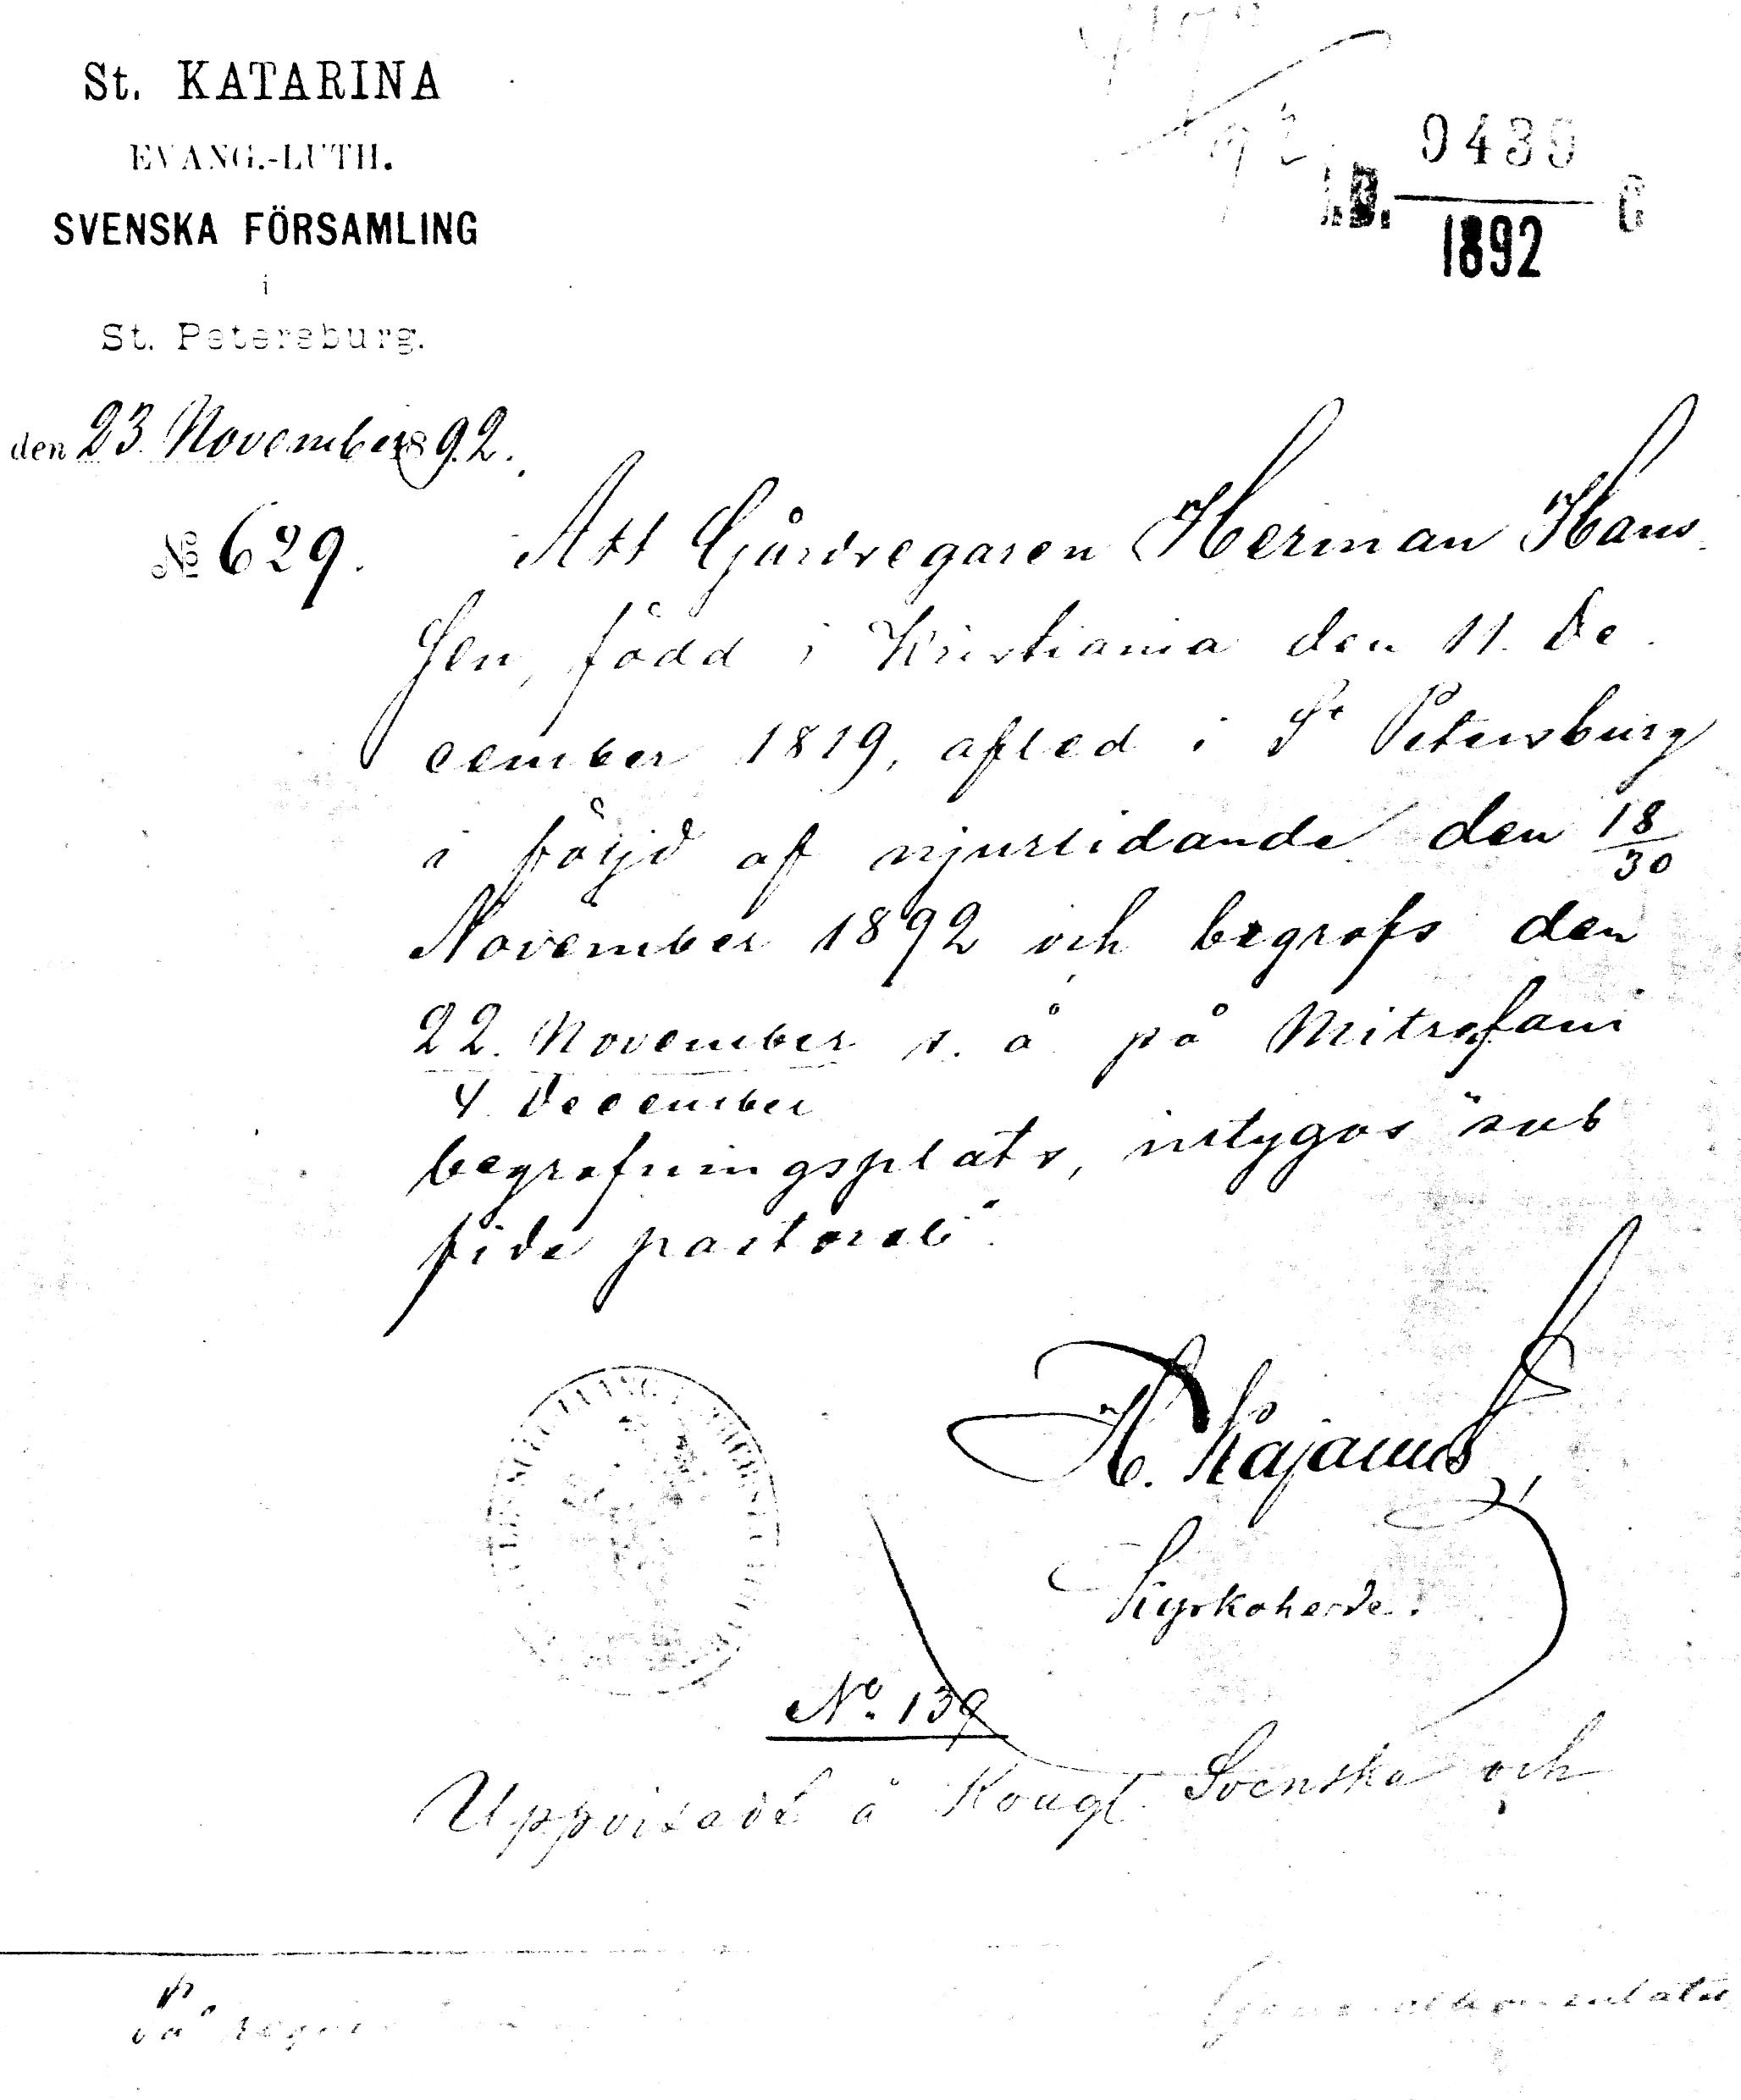 St. KATARINA
EVANG.-LUTH.
SVENSKA FÖRSAMLING
i
St. Petersburg.
den 23. November 1892.
№ 629.
J.D. 9439 C
1892
Att Gårdsegaren Herman Han-
sen, född i Kristiania den 11. De-
cember 1819, afled i St Petersburg
i följd af njurlidande den 18/30
November 1892 och begrofs den
22. November s. å. på Mitrofani
4. December
begrafningsplats, intygas "sub
fide pastorali".
H. Kajanus
Kyrkoherde.
No. 139
Uppvisadt å Kongl. Svenska och
Generalkonsulatet